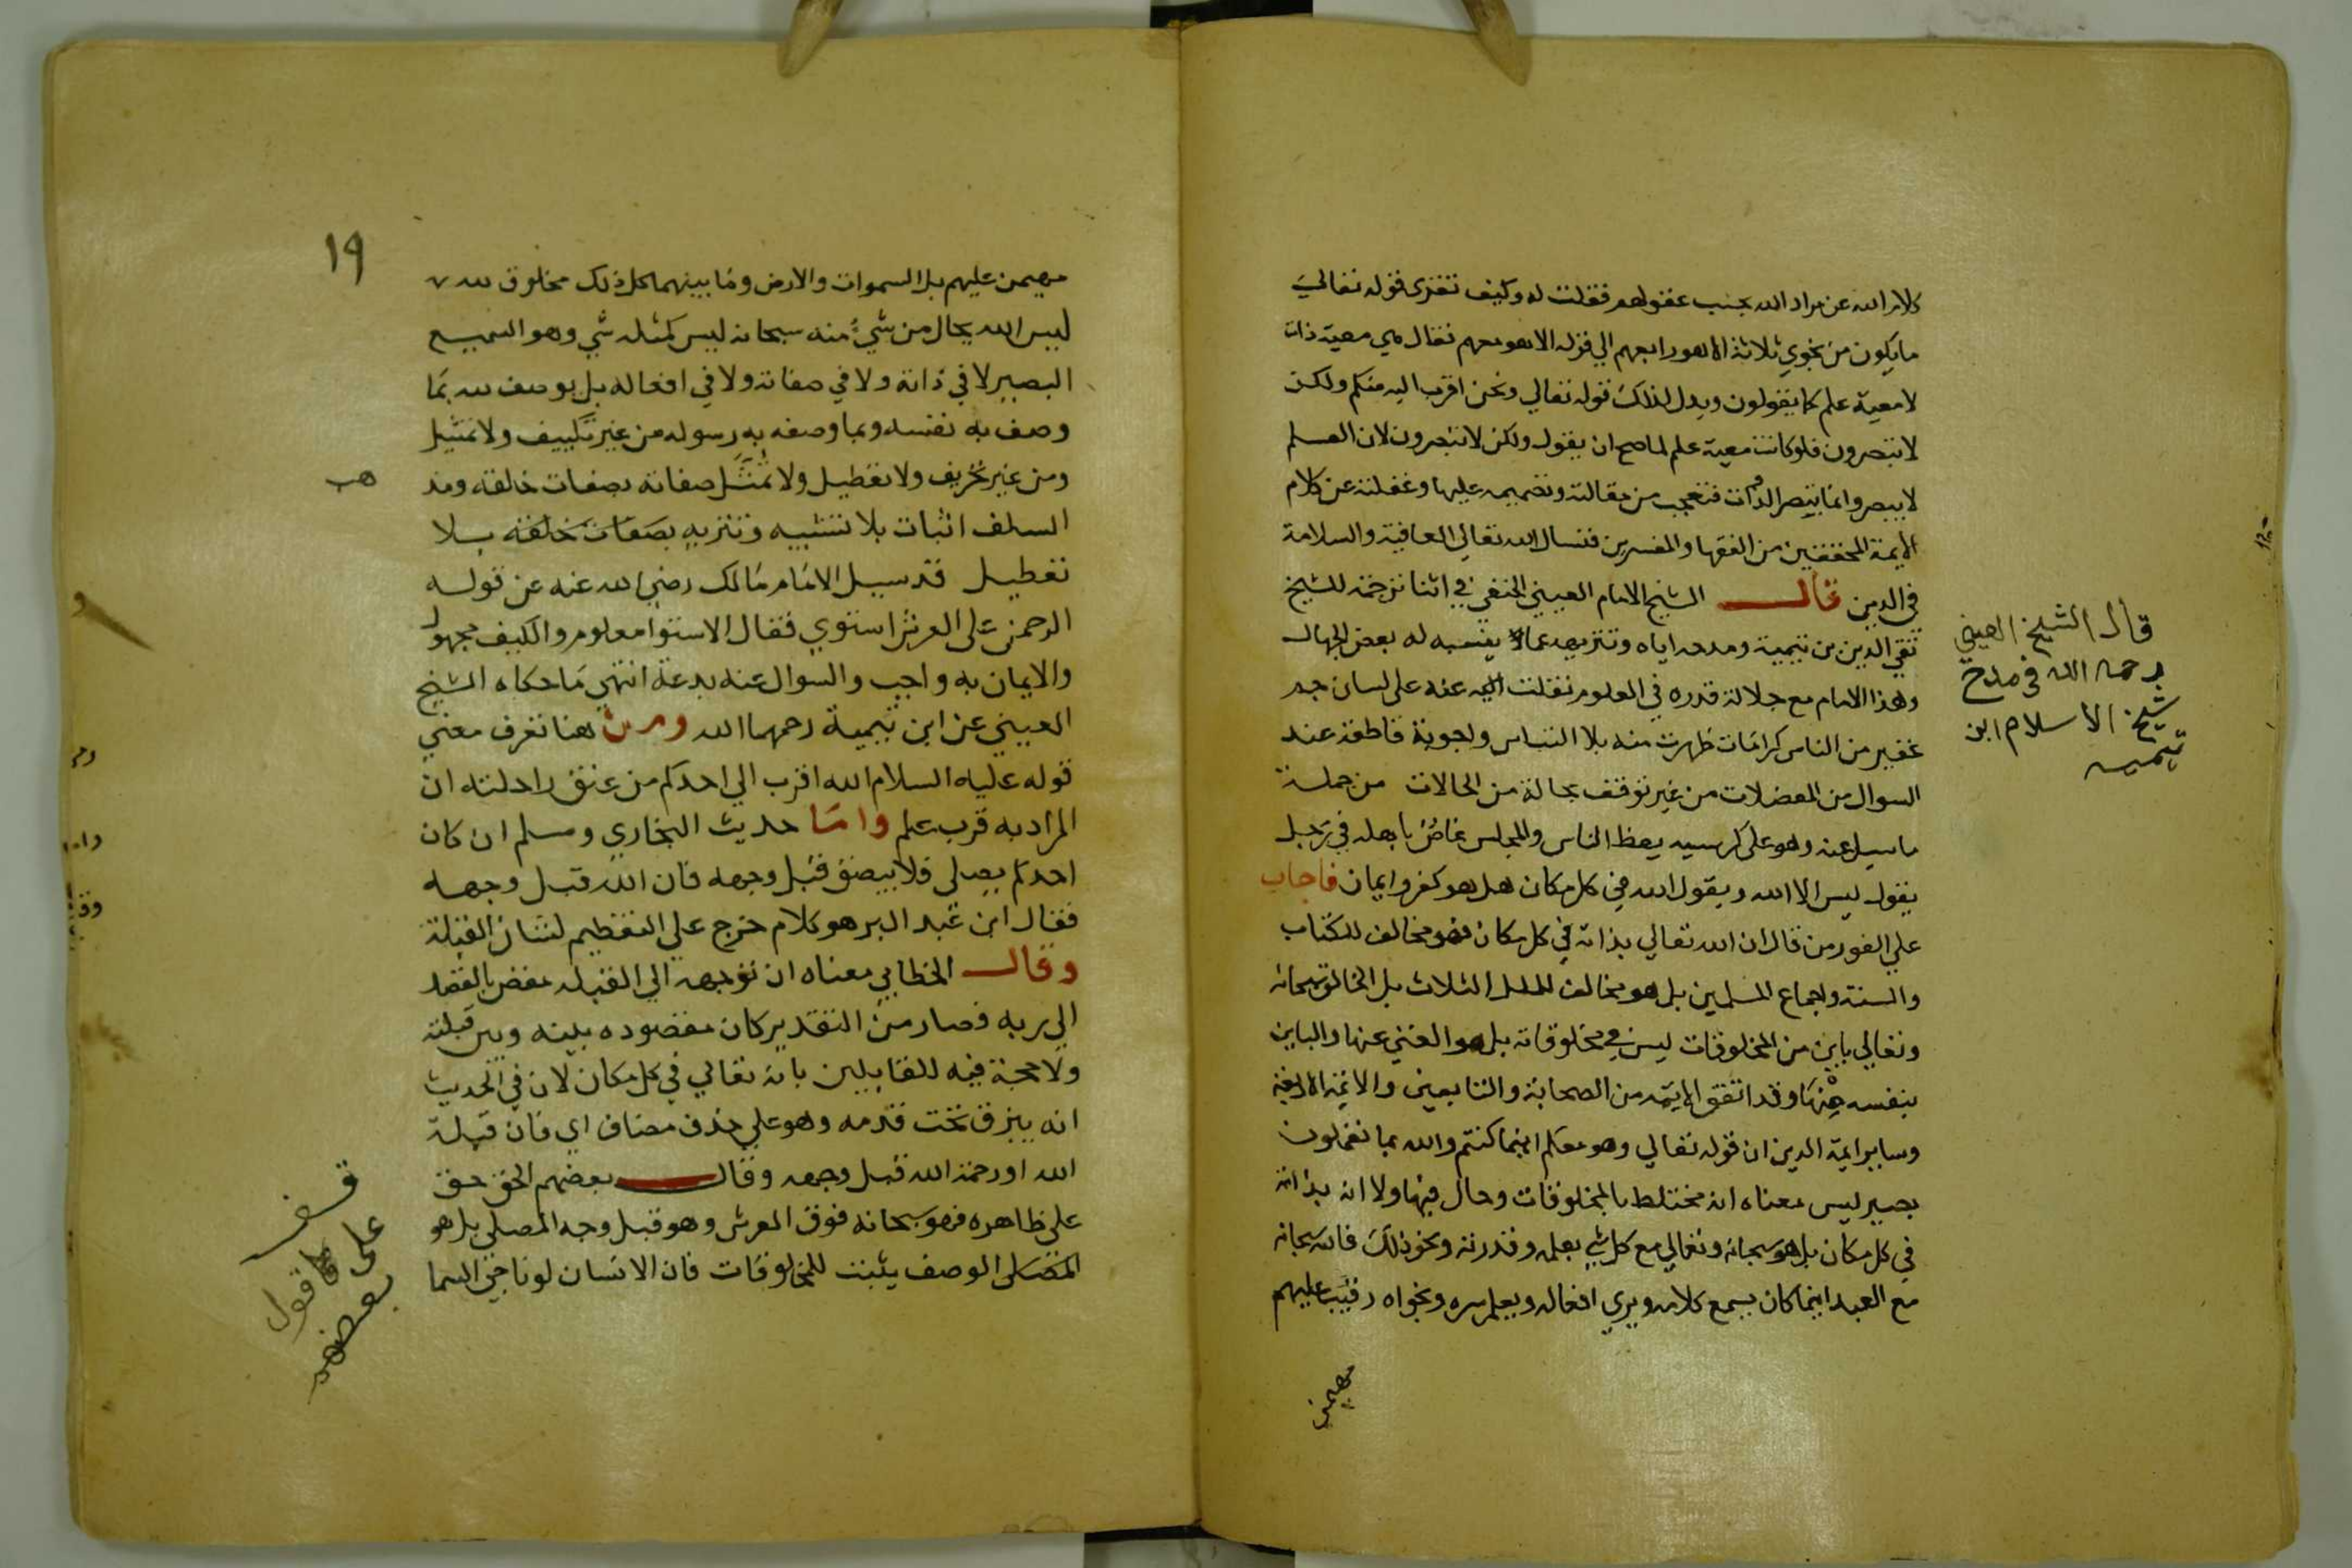 كلام الله عن مراد الله بحسب عقولهم فقلت له وكيف تقرى قوله تعالي
ما يكون من نجوي ثلاثة الا هو رابعهم الي قوله الا هو معهم فقال هي معية ذات
لا معية علم كما يقولون ويدل لذلك قوله تعالي ونحن اقرب اليه منكم ولكن
لا تبصرون فلو كانت معية علم لما صح ان يقول ولكن لا تبصرون لان العلم
لا يبصر وانما يبصر الذات فتعجب من مقالته وتصميمه عليها وغفلته عن كلام
الايمة المحققين من الفقها والمفسرين فنسال الله تعالي العافية والسلامة
في الدين قال الشيخ الامام العيني الحنفي في اثنا ترجمته للشيخ
تقي الدين بن تيمية ومدحه اياه وتنزيهه عما ينسبه له بعض الجهال
وهذا الامام مع جلالة قدره في العلوم نقلت عنه على لسان جم
غفير من الناس كرامات ظهرت منه بلا التباس واجوبة قاطعة عند
السوال من المعضلات من غير توقف بحالة من الحالات من جملة
ما سيل عنه وهو على كرسيه يعظ الناس والمجلس غاص باهله في رجل
يقول ليس الا الله ويقول الله في كل مكان هل هو كفر او ايمان فاجاب
علي الفور من قال ان الله تعالي بذاته في كل مكان فهو مخالف للكتاب
والسنة واجماع المسلمين بل هو مخالف للملل الثلاث بل الخالق سبحانه
وتعالي باين من المخلوقات ليس في مخلوقاته بل هو الغني عنها والباين
بنفسه منها وقد اتفق الايمه من الصحابة والتابعين والايمة الاربعة
وساير ايمة الدين ان قوله تعالي وهو معكم اينما كنتم والله بما تعملون
بصير ليس معناه انه مختلط بالمخلوقات وحال فيها ولا انه بذاته
في كل مكان بل هو سبحانه وتعالي مع كل شي بعلمه وقدرته ونحو ذلك فالله سبحانه
مع العبد اينما كان يسمع كلامه ويري افعاله ويعلم سره ونجواه رقيب عليهم
مهيمن
قال الشيخ العيني
رحمه الله في مدح
شيخ الاسلام ابن
تيميه
19
مهيمن عليهم بل السموات والارض وما بينهما كل ذلك مخلوق لله
ليس الله بحال من شيء منه سبحانه ليس كمثله شي وهو السميع
البصير لا في ذاته ولا في صفاته ولا في افعاله بل يوصف لله بما
وصف به نفسه وبما وصفه به رسوله من غير تكييف ولا تمثيل
ومن غير تحريف ولا تعطيل ولا تمثل صفاته بصفات خالقه ومذ
هب
السلف اثبات بلا تشبيه وتنزيه بصفات خلقه بلا
تعطيل قد سيل الامام مالك رضي الله عنه عن قوله
الرحمن على العرش استوي فقال الاستوا معلوم والكيف مجهول
والايمان به واجب والسوال عنه بدعة انتهي ما حكاه الشيخ
العيني عن ابن تيمية رحمهما الله ومن هنا تعرف معني
قوله عليه السلام الله اقرب الي احدكم من عنق راحلته ان
المراد به قرب علم واما حديث البخاري ومسلم ان كان
احدكم يصلي فلا يبصق قبل وجهه فان الله قبل وجهه
فقال ابن عبد البر هو كلام خرج علي التعظيم لشان القبلة
وقال الخطابي معناه ان توجهه الي القبله مفض بالقصد
الي ربه فصار من التقدير كان مقصوده بينه وبين قبلته
ولا حجة فيه للقايلين بانه تعالي في كل مكان لان في الحديث
انه يبزق تحت قدمه وهو علي حذف مضاف اي فان قبلة
الله او رحمة الله قبل وجهه وقال بعضهم الحق حق
على ظاهره فهو سبحانه فوق العرش وهو قبل وجه المصلي بل هو
الوصف يثبت للمخلوقات فان الانسان لو ناجي السما
قف
على
ما قول
بعضهم